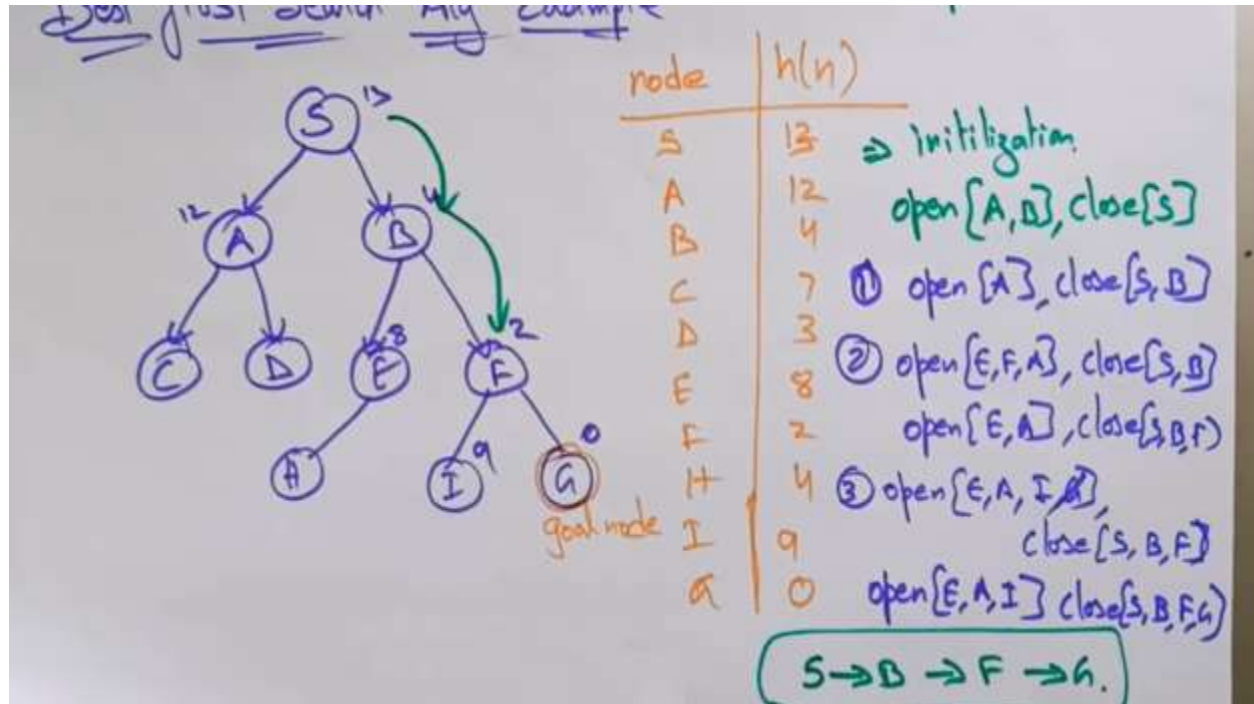 Best first Search Alg Example
S 13
12 A
B 4
C
D
E 8
F 2
H
I 9
G 0
goal node
node h(n)
S 13
A 12
B 4
C 7
D 3
E 8
F 2
H 4
I 9
G 0
⇒ initilization.
open[A,B], close[S]
① open[A], close[S,B]
② open[E,F,A], close[S,B]
open[E,A], close[S,B,F)
③ open[E,A,I,G],
close[S,B,F]
open[E,A,I] close[S,B,F,G)
S→B→F→G.